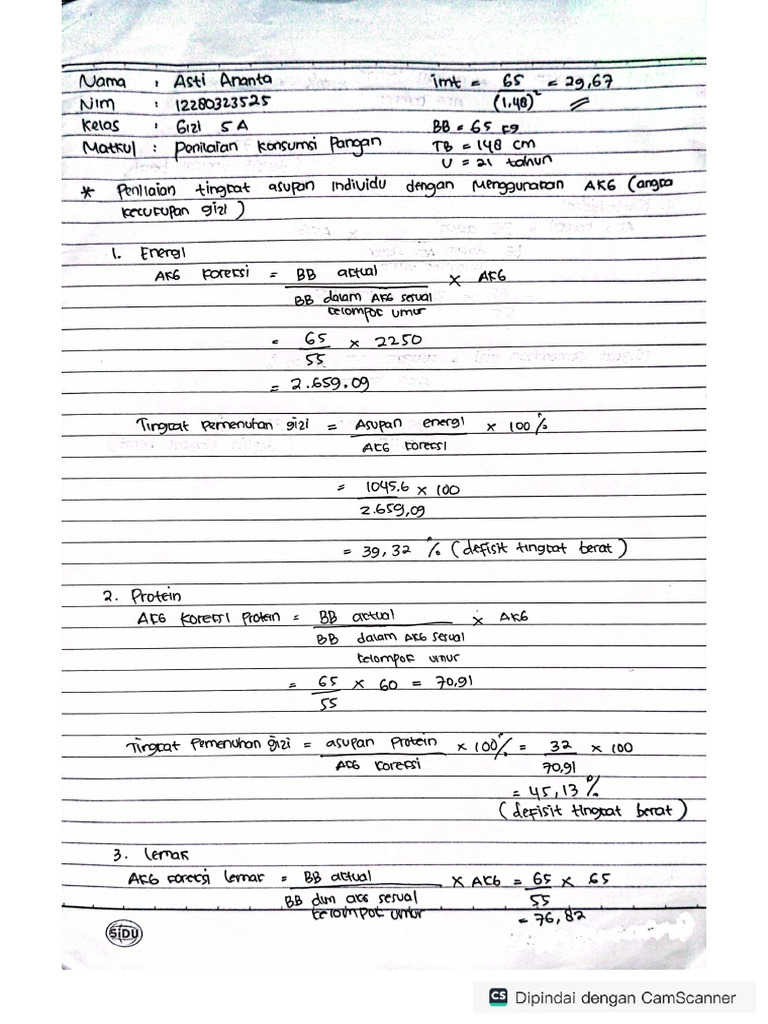 Nama : Asti Ananta imt = 65 = 29,67
Nim : 12280323525 (1.48)²
Kelas : Gizi 5A BB = 65 kg
Matkul : Penilaian Konsumsi Pangan TB = 148 cm
U = 21 tahun
* Penilaian tingkat asupan Individu dengan Menggunakan AKG (angka
kecukupan gizi)
1. Energi
AKG koreksi = BB aktual x AKG
BB dalam AKG sesuai
kelompok umur
= 65 x 2250
55
= 2.659.09
Tingkat Pemenuhan gizi = Asupan energi x 100%
AKG koreksi
= 1045.6 x 100
2.659,09
= 39,32 % (defisit tingkat berat)
2. Protein
AKG koreksi Protein = BB actual x AKG
BB dalam AKG sesuai
kelompok umur
= 65 x 60 = 70,91
55
Tingkat Pemenuhan gizi = asupan Protein x 100% = 32 x 100
AKG koreksi 70,91
= 45,13 %
(defisit tingkat berat)
3. Lemak
AKG koreksi lemak = BB aktual x AKG = 65 x 65
BB dlm AKG sesuai 55
kelompok umur = 76,82
SiDU
CS Dipindai dengan CamScanner